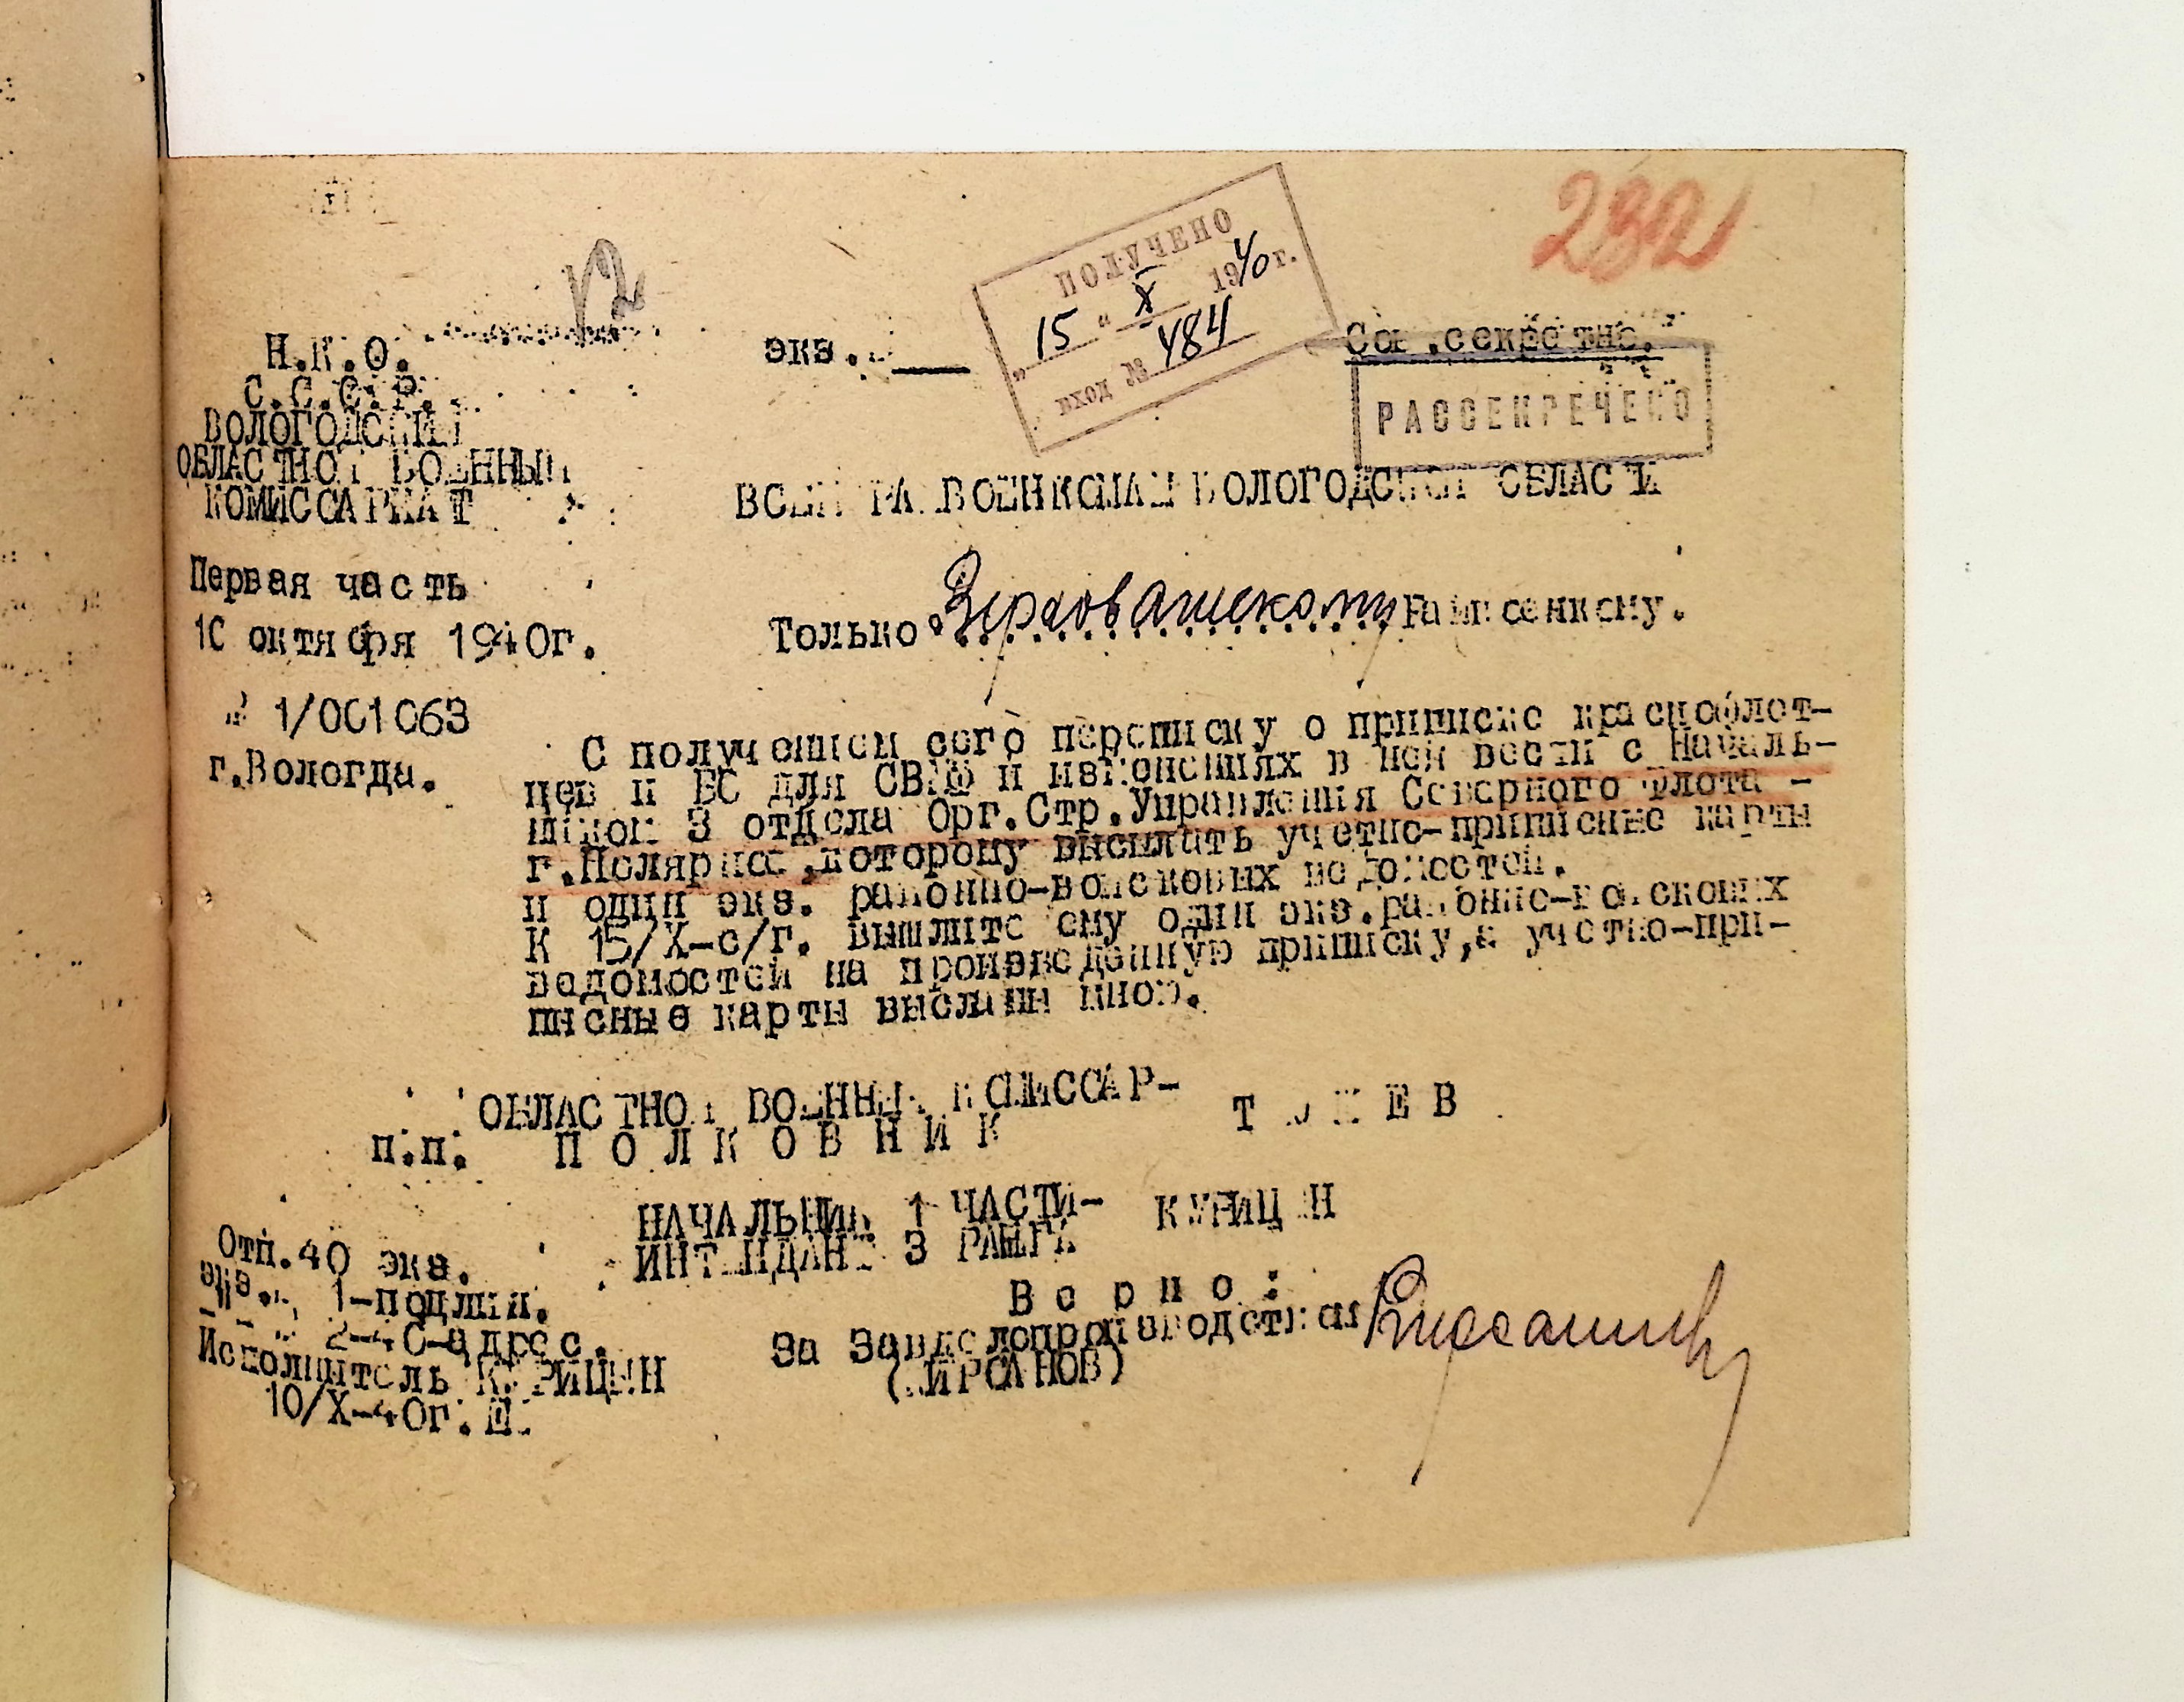 232
12
ПОЛУЧЕНО
"15" X 1940г.
вход № 484
Н.К.О.
С.С.С.Р.
ВОЛОГОДСКИЙ
ОБЛАСТНОЙ ВОЕННЫЙ
КОМИССАРИАТ
экз.
Сов.секретно.
РАССЕКРЕЧЕНО
ВСЕМ РАЙВОЕНКОМАМ ВОЛОГОДСКОЙ ОБЛАСТИ
Первая часть
10 октября 1940г.
Только Райвоенкому.
№ 1/001063
г.Вологда.
С получением сего переписку о приписке краснофлот-
цев и НС для СВМФ и изменениях в ней вести с Началь-
ником 3 отдела Орг.Стр.Управления Северного Флота -
г.Полярное,которому высылать учетно-приписные карты
и один экз. районно-войсковых ведомостей.
К 15/X-с/г. вышлите ему один экз.районно-войсковых
ведомостей на произведенную приписку,а учетно-при-
писные карты высланы мною.
ОБЛАСТНОЙ ВОЕННЫЙ КОМИССАР-
п.п. ПОЛКОВНИК
НАЧАЛЬНИК 1 ЧАСТИ-
ИНТЕНДАНТ 3 РАНГА
Отп.40 экз.
экз.№ 1-подлин.
2-40-адрес.
Исполнитель
10/X-40г.
Верно:
За Завделопроизводством
(КИРСАНОВ)